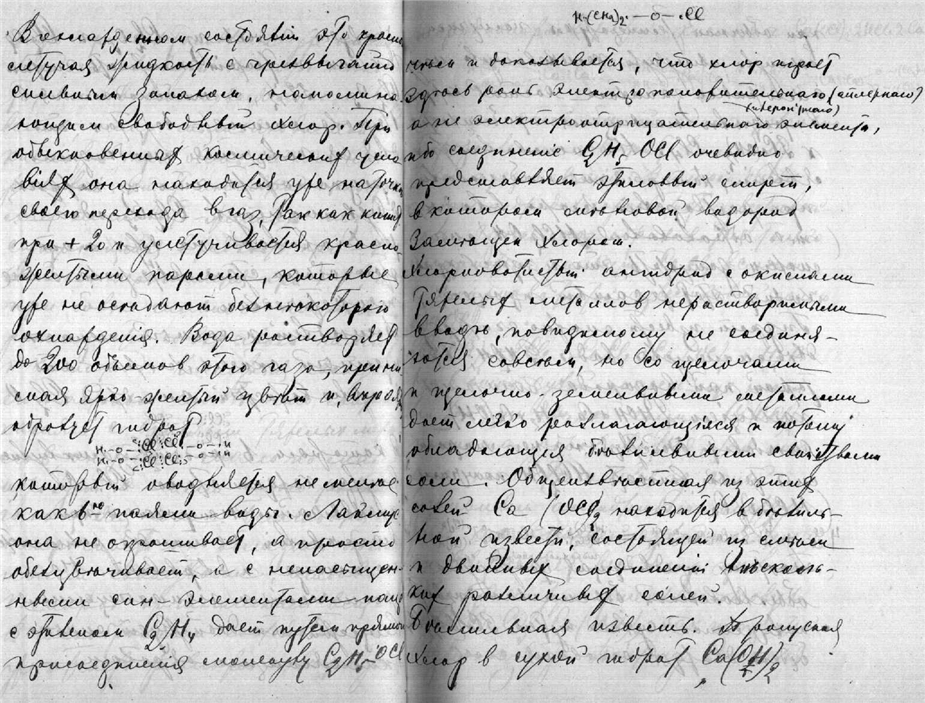 Въ охлажденномъ состоянiи это красно
летучая жидкость с чрезвычайно
сильнымъ запахомъ, напомина
ющимъ свободный хлоръ. При
обыкновенныхъ космическихъ усло
вiяхъ она находится уже на точкѣ
своего перехода в газ, так какъ кипитъ
при + 20 и улетучивается красно
желтыми парами, которые
уже не осѣдаютъ без некотораго
охлажденiя. Вода растворяетъ
до 200 объемов этого газа, прини
мая ярко желтый цвѣтъ и,
образуетъ гидратъ
H-O-:Cl:Cl:-O-:H
H-O-:Cl:Cl:-O-:H
который оводняется не менѣе
какъ 6ю паями воды. Лакмус
она не окрашивает, а просто
обезцвѣчивает, а с ненасыщен
ными элементами
с этиленомъ C2H4 дает путемъ прямого
присоединенiя молекулу C2H5OCl
H-(CH2)2-O-:Cl
чѣмъ и доказывается, что хлор играет
здѣсь роль электроположительнаго
а не электроотрицательнаго элемента,
ибо соединенiе C2H5OCl очевидно
представляетъ этиловый спиртъ,
в которомъ водород
замѣщенъ хлоромъ.
Хлорноватистый ангидрид с окислами
тяжелыхъ металлов нерастворимыми
в водѣ, повидимому не соединя-
ются совсѣмъ, но со щелочами
и щелочно-земельными металлами
дает легко разлагающiяся и потому
обладающiя бѣлильными свойствами
соли. Общеизвѣстная из этихъ
солей Ca(OCl)2 находится в бѣлиль-
ной извести, состоящей из смѣси
и двойныхъ соединенiй нѣсколь-
ких различныхъ солей.
Бѣлильная известь. Пропуская
хлор в сухой гидрат Ca(OH)2